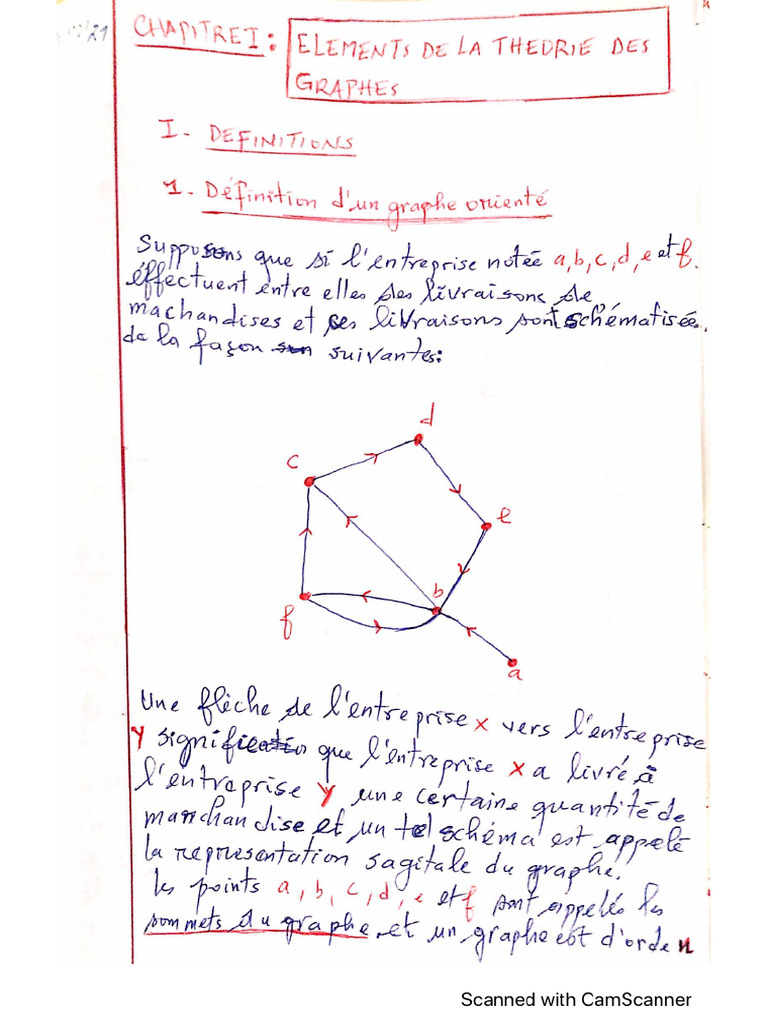 /21
CHAPITRE I : ELEMENTS DE LA THEORIE DES
GRAPHES
I- DEFINITIONS
1. Définition d'un graphe orienté
Supposons que si l'entreprise notée a, b, c, d, e et f.
éffectuent entre elles des livraisons de
machandises et ses livraisons sont schématisée.
de la façon suivantes:
d
c
e
b
f
a
Une flèche de l'entreprise x vers l'entreprise
y signifie que l'entreprise x a livré à
l'entreprise y une certaine quantité de
marchandise et un tel schéma est appelé
la representation sagitale du graphe.
les points a, b, c, d, e et f sont appellés les
sommets du graphe, et un graphe est d'orde n
Scanned with CamScanner